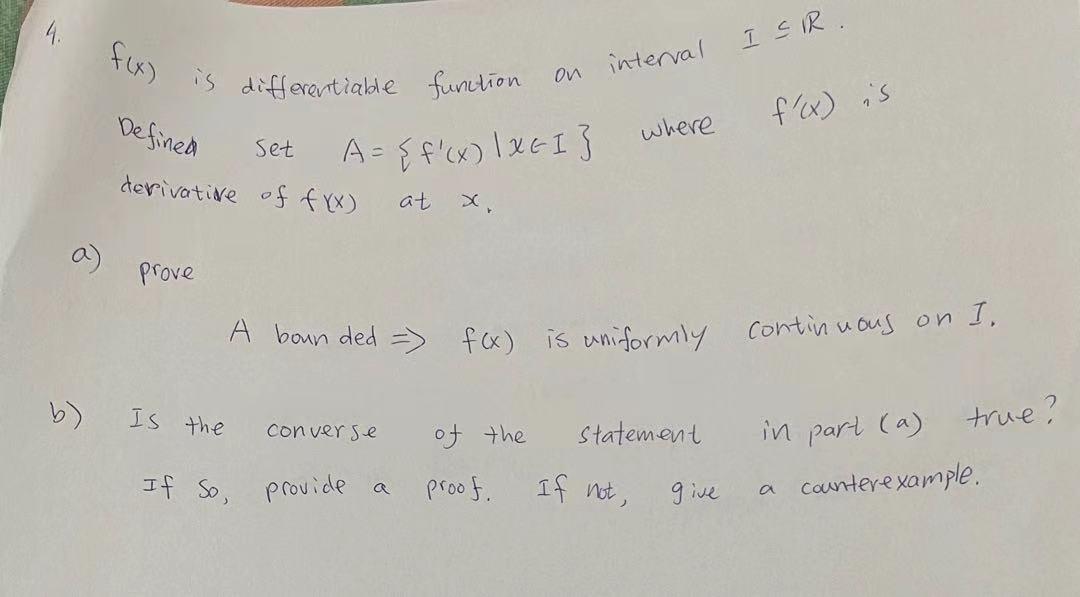 4.
f(x) is differentiable function on interval I ⊆ ℝ.
Defined set A = { f'(x) | x ∈ I } where f'(x) is
derivative of f(x) at x.
a) prove
A bounded ⇒ f(x) is uniformly continuous on I.
b) Is the converse of the statement in part (a) true?
If so, provide a proof. If not, give a counterexample.